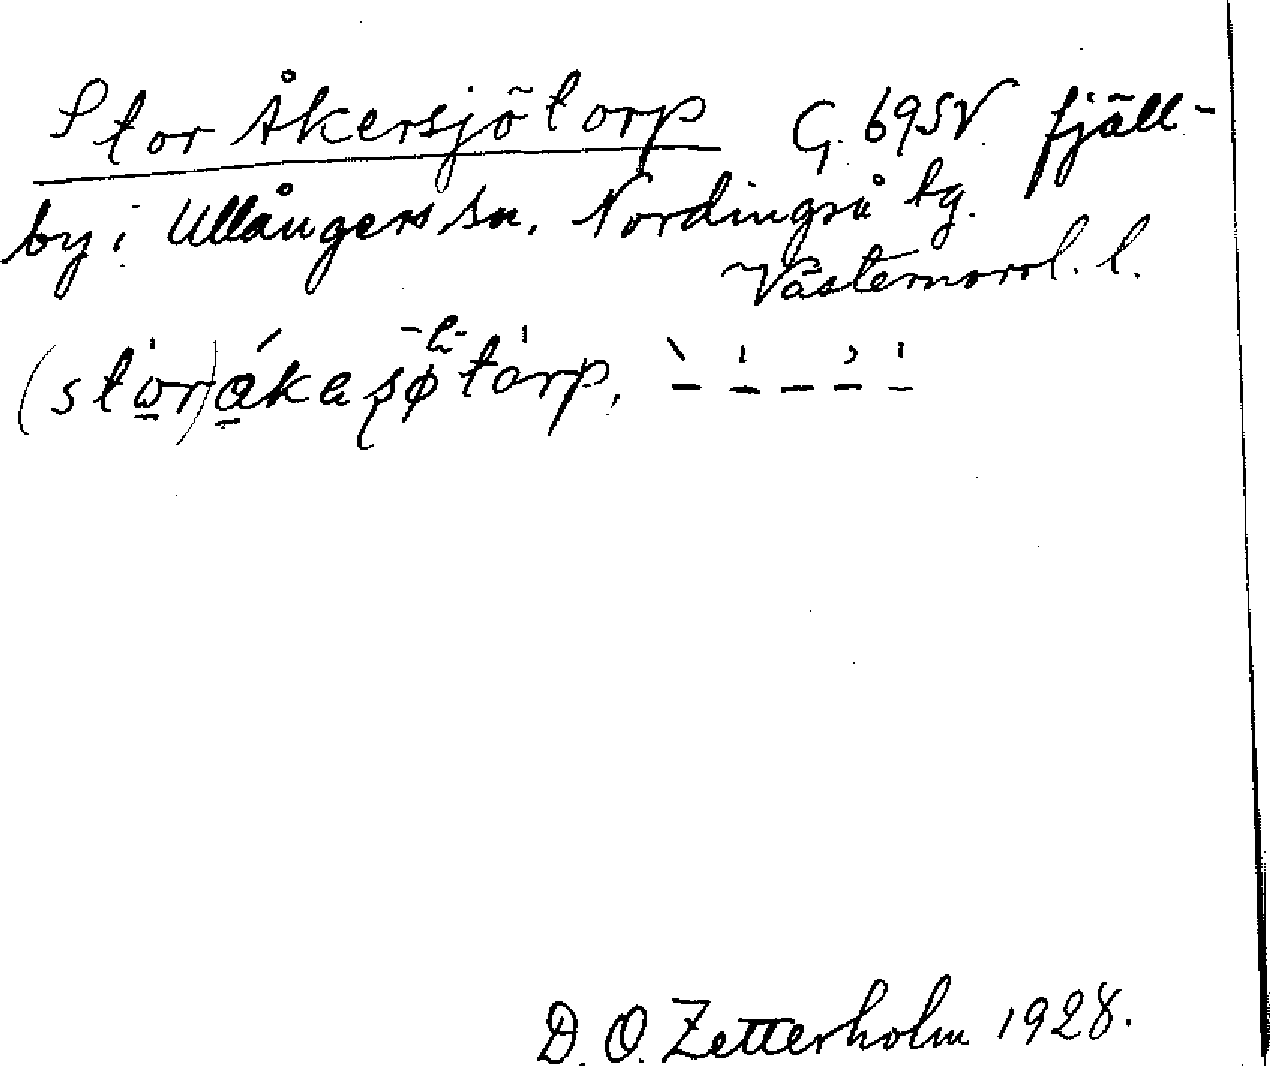 Stor Åkersjötorp G. 69SV fjäll-
by i Ullångers sn. Nordingrå tg.
Västernorrl. l.
(stωr)åkaʂøtórp,
D. O. Zetterholm 1928.